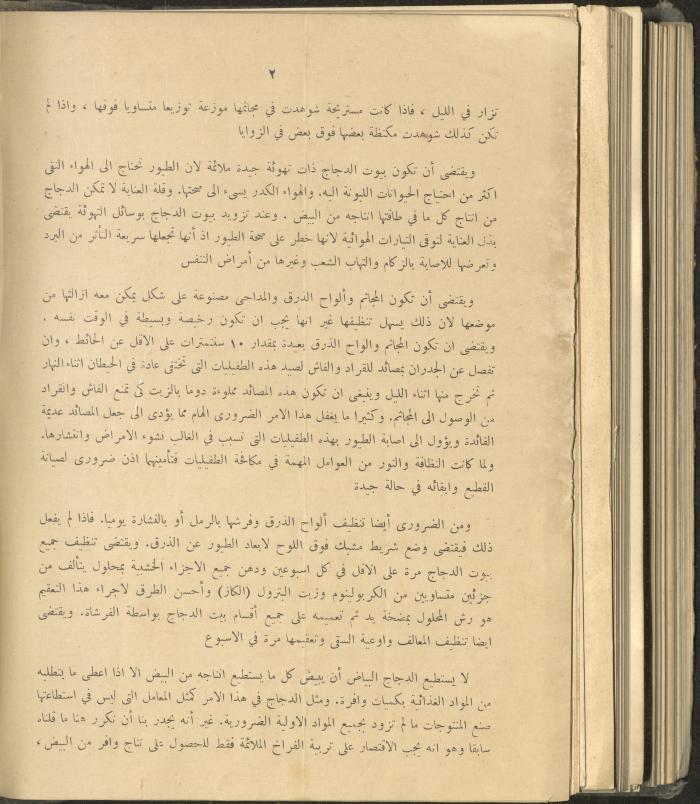 ٢
تزار في الليل ، فاذا كانت مستريحة شوهدت في مجاثمها موزعة توزيعا متساويا فوقها ، واذا لم
تكن كذلك شوهدت مكتظة بعضها فوق بعض في الزوايا
ويقتضى أن تكون بيوت الدجاج ذات تهوئة جيدة ملائمة لان الطيور تحتاج الى الهواء النقى
اكثر من احتياج الحيوانات اللبونة اليه. والهواء الكدر يسىء الى صحتها. وقلة العناية لا تمكن الدجاج
من انتاج كل ما في طاقتها انتاجه من البيض . وعند تزويد بيوت الدجاج بوسائل التهوئة يقتضى
بذل العناية لتوقى التيارات الهوائية لانها خطر على صحة الطيور اذ أنها تجعلها سريعة التأثر من البرد
وتعرضها للاصابة بالزكام والتهاب الشعب وغيرها من أمراض التنفس
ويقتضى أن تكون المجاثم وألواح الذرق والمداحى مصنوعة على شكل يمكن معه ازالتها من
موضعها لان ذلك يسهل تنظيفها غير انها يجب ان تكون رخيصة وبسيطة في الوقت نفسه .
ويقتضى ان تكون المجاثم والواح الذرق بعيدة بمقدار ١٠ سنتمترات على الاقل عن الحائط ، وان
تفصل عن الجدران بمصائد للقراد والفاش لصيد هذه الطفيليات التى تختفى عادة في الحيطان اثناء النهار
ثم تخرج منها اثناء الليل وينبغى ان تكون هذه المصائد مملوءة دوما بالزيت كى تمنع الفاش والقراد
من الوصول الى المجاثم. وكثيرا ما يغفل هذا الامر الضرورى الهام مما يؤدى الى جعل المصائد عديمة
الفائدة ويؤول الى اصابة الطيور بهذه الطفيليات التى تسبب في الغالب نشوء الامراض وانتشارها.
ولما كانت النظافة والنور من العوامل المهمة في مكافحة الطفيليات فتأمينهما اذن ضرورى لصيانة
القطيع وابقائه في حالة جيدة
ومن الضرورى أيضا تنظيف ألواح الذرق وفرشها بالرمل أو بالنشارة يوميا. فاذا لم يفعل
ذلك فيقتضى وضع شريط مشبك فوق اللوح لابعاد الطيور عن الذرق. ويقتضى تنظيف جميع
بيوت الدجاج مرة على الاقل في كل اسبوعين ودهن جميع الاجزاء الخشبية بمحلول يتألف من
جزئين متساويين من الكربولينوم وزيت البترول (الكاز) وأحسن الطرق لاجراء هذا التعقيم
هو رش المحلول بمضخة يد ثم تعميمه على جميع أقسام بيت الدجاج بواسطة الفرشاة. ويقتضى
ايضا تنظيف المعالف واوعية السقى وتعقيمها مرة في الاسبوع
لا يستطيع الدجاج البياض أن يبيض كل ما يستطيع انتاجه من البيض الا اذا اعطى ما يتطلبه
من المواد الغذائية بكميات وافرة. ومثل الدجاج في هذا الامر كمثل المعامل التى ليس في استطاعتها
صنع المنتوجات ما لم تزود بجميع المواد الاولية الضرورية. غير أنه يجدر بنا أن نكرر هنا ما قلناه
سابقا وهو انه يجب الاقتصار على تربية الفراخ الملائمة فقط للحصول على نتاج وافر من البيض ،